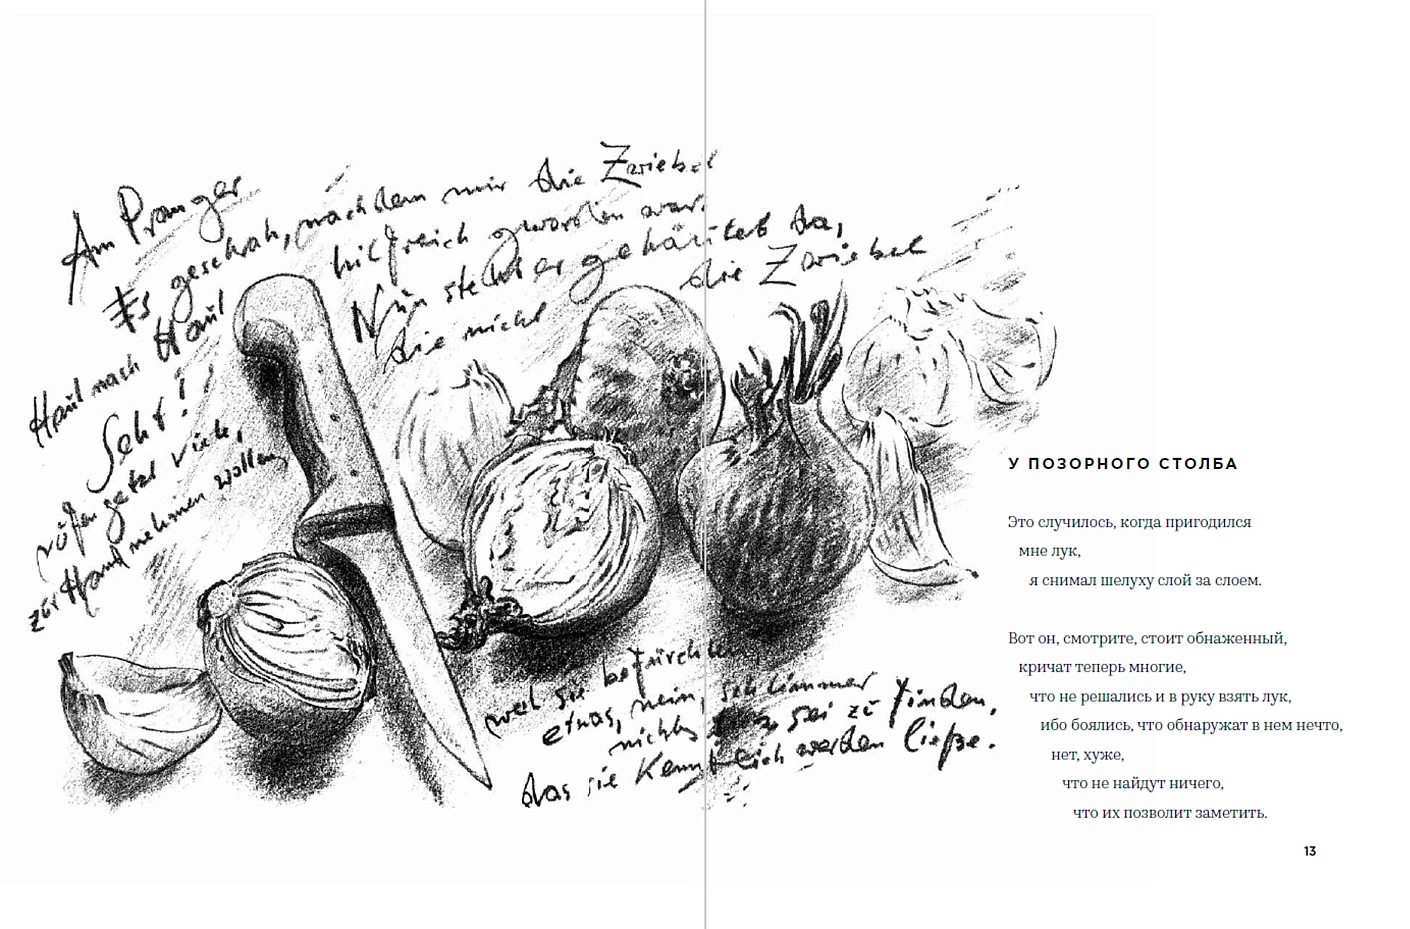 Am Pranger
Es geschah, nachdem mir die Zwiebel
hilfreich geworden war.
Haut nach Haut
Nun steht er gehäutet da,
Seht!
rufen jetzt viele,
die nicht
die Zwiebel
zur Hand nehmen wollen,
weil sie befürchten,
etwas, nein, schlimmer
nichts sei zu finden,
das sie kenntlich werden ließe.
У ПОЗОРНОГО СТОЛБА
Это случилось, когда пригодился
мне лук,
я снимал шелуху слой за слоем.
Вот он, смотрите, стоит обнаженный,
кричат теперь многие,
что не решались и в руку взять лук,
ибо боялись, что обнаружат в нем нечто,
нет, хуже,
что не найдут ничего,
что их позволит заметить.
13